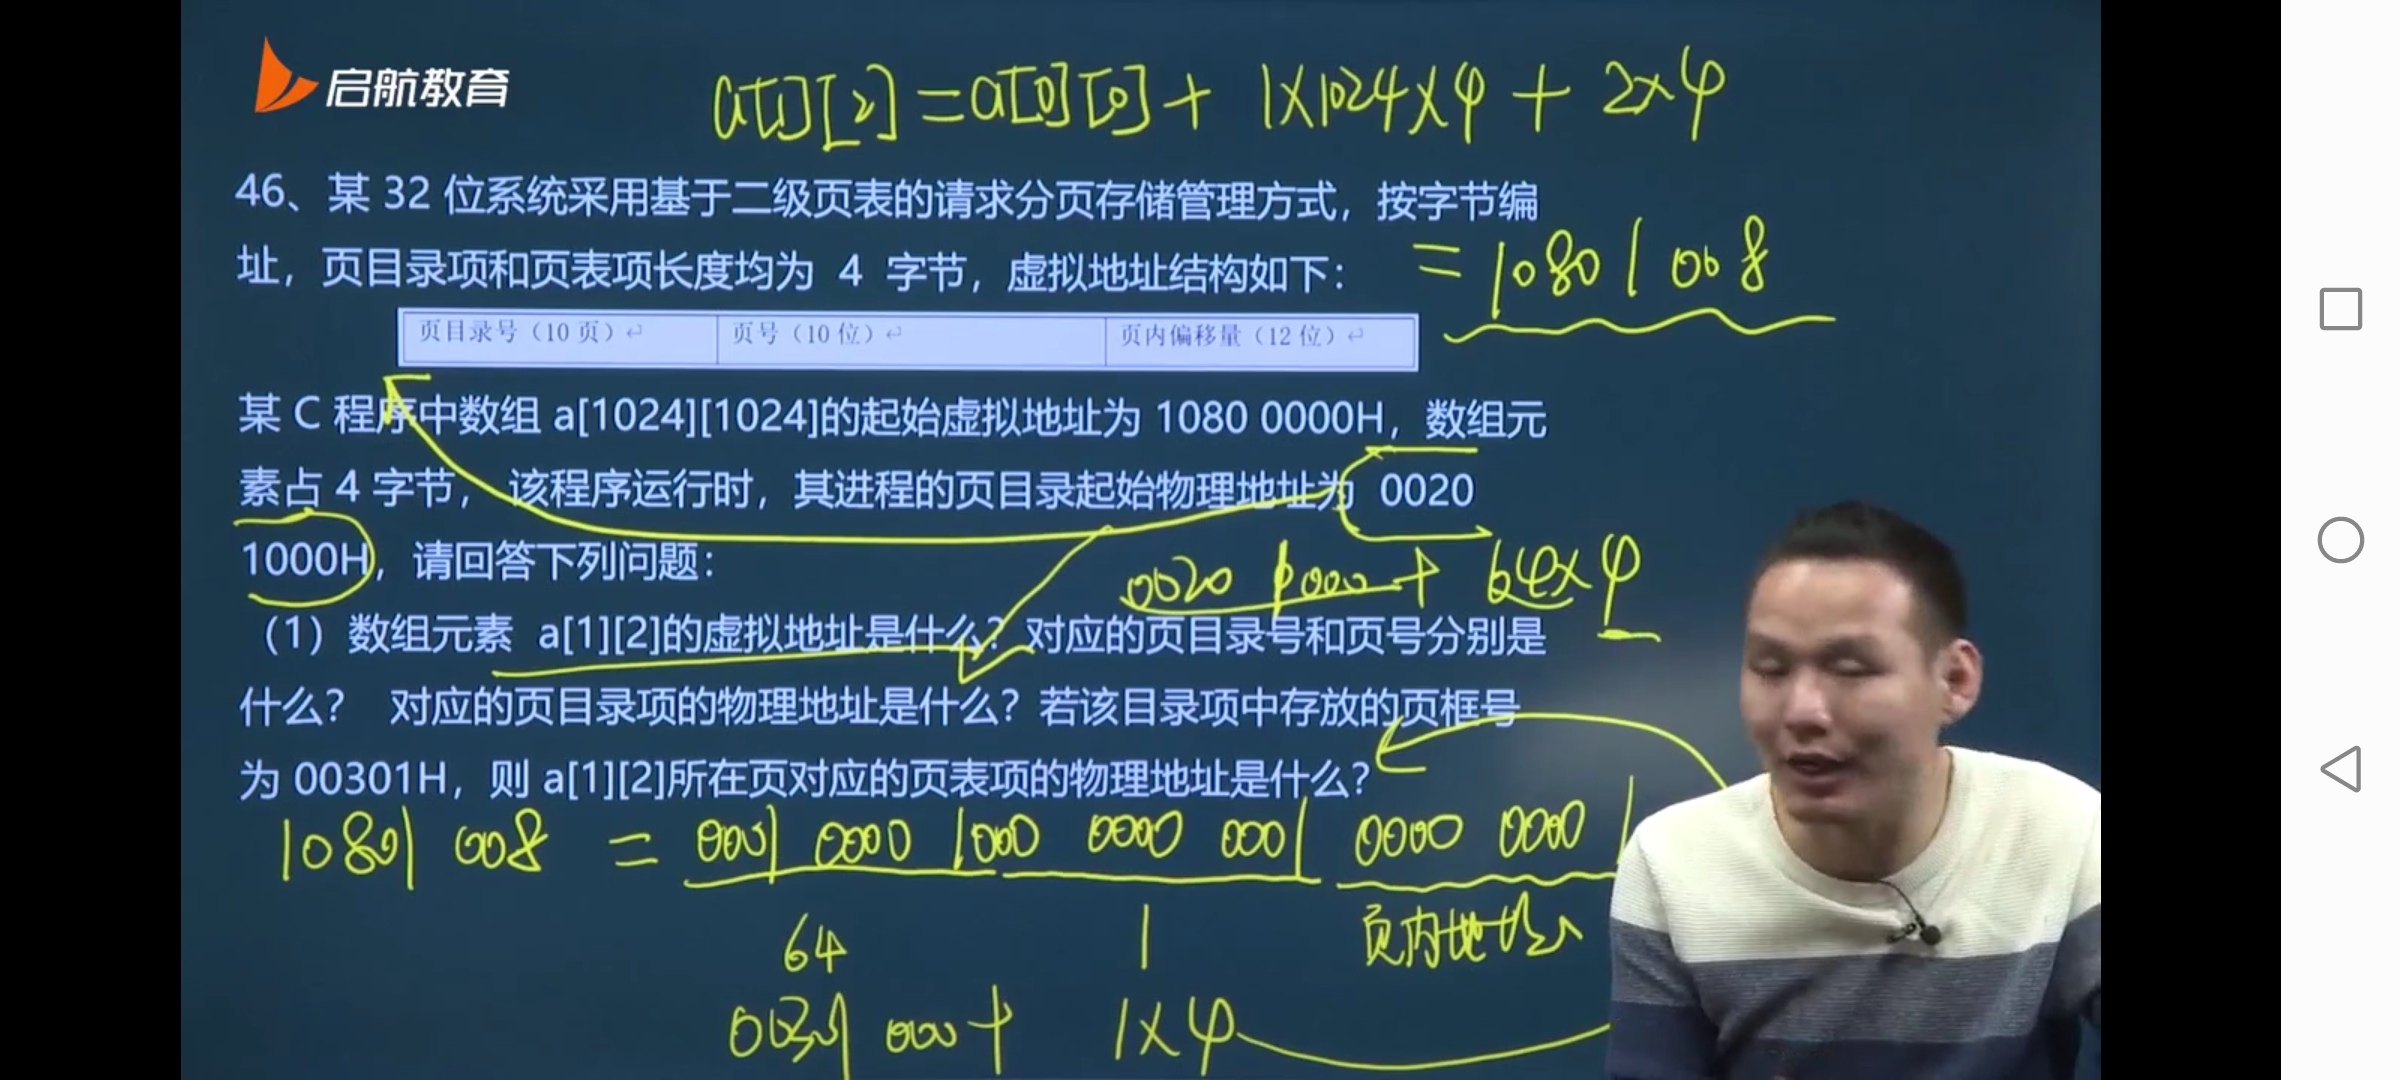 启航教育
a[1][2]=a[0][0]+ 1×1024×4 + 2×4
46、某 32 位系统采用基于二级页表的请求分页存储管理方式，按字节编
址，页目录项和页表项长度均为 4 字节，虚拟地址结构如下：
= 1080 1 008
页目录号（10 页） 页号（10 位） 页内偏移量（12 位）
某 C 程序中数组 a[1024][1024]的起始虚拟地址为 1080 0000H，数组元
素占 4 字节， 该程序运行时，其进程的页目录起始物理地址为 0020
1000H，请回答下列问题：
0020 1000+ 64×4
（1）数组元素 a[1][2]的虚拟地址是什么？对应的页目录号和页号分别是
什么？ 对应的页目录项的物理地址是什么？若该目录项中存放的页框号
为 00301H，则 a[1][2]所在页对应的页表项的物理地址是什么？
10801 008 = 0001 0000 1000 0000 0001 0000 0000 1
64 1 页内地址
00301 000+ 1×4